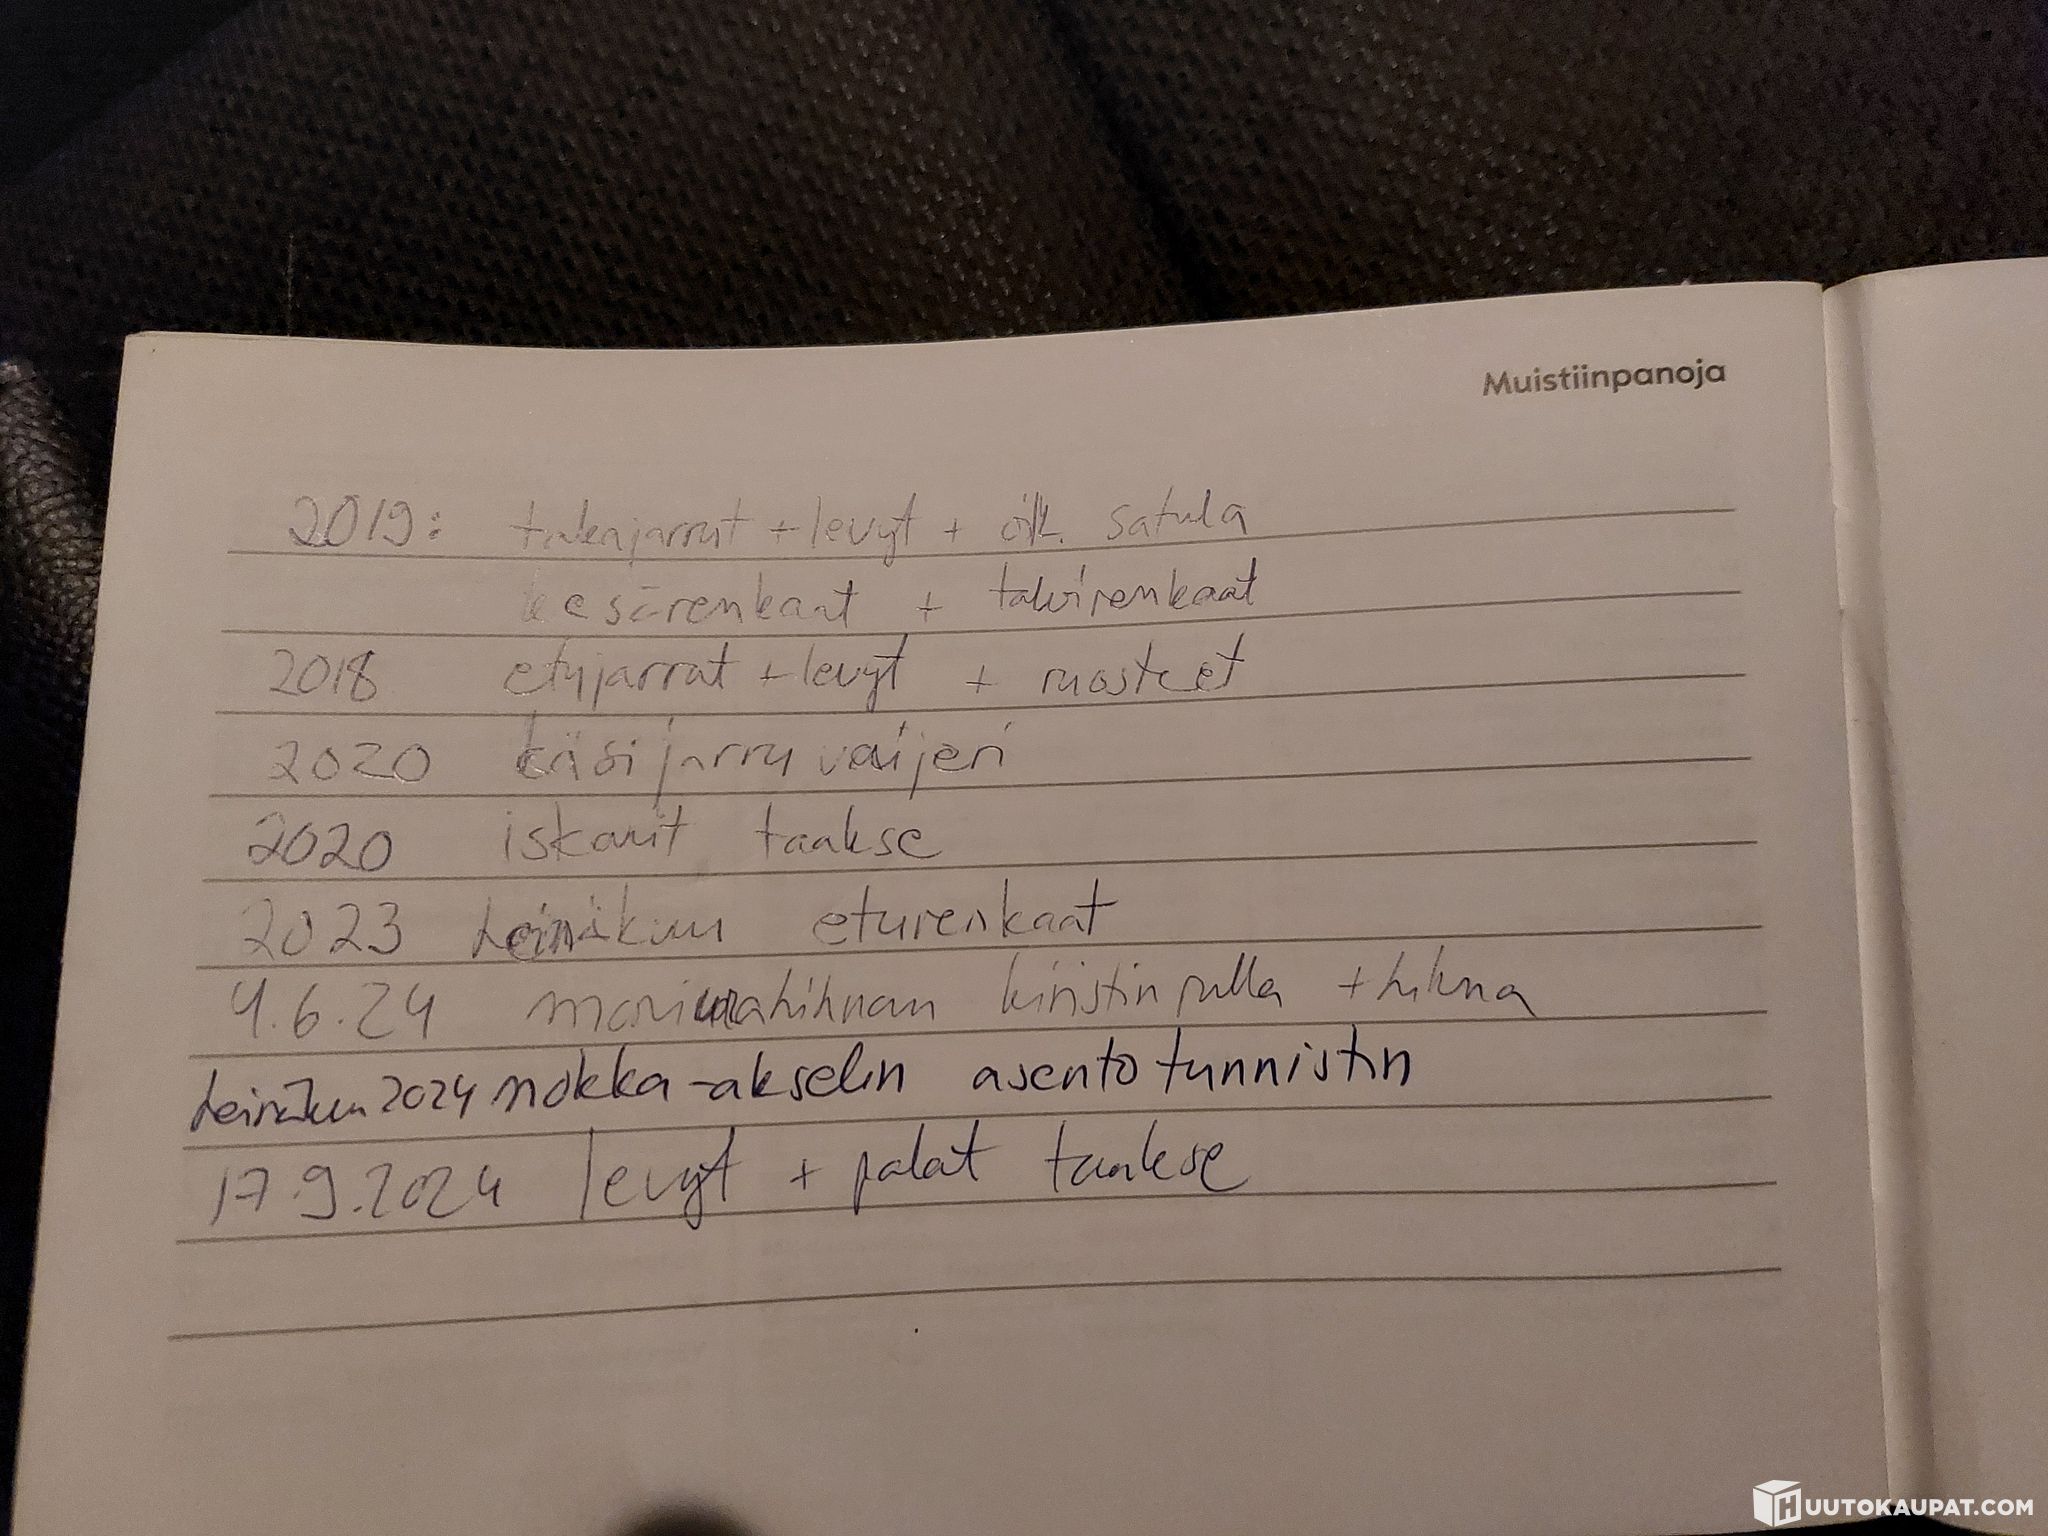 Muistiinpanoja
2019: takajarrut + levyt + oik. satula
kesärenkaat + talvirenkaat
2018 etujarrut + levyt + ruosteet
2020 käsijarru vaijeri
2020 iskarit taakse
2023 heinäkuu eturenkaat
4.6.24 moniurahihnan kiristin rulla + hihna
heinäkuu 2024 nokka-akselin asento tunnistin
17.9.2024 levyt + palat taakse
HUUTOKAUPAT.COM